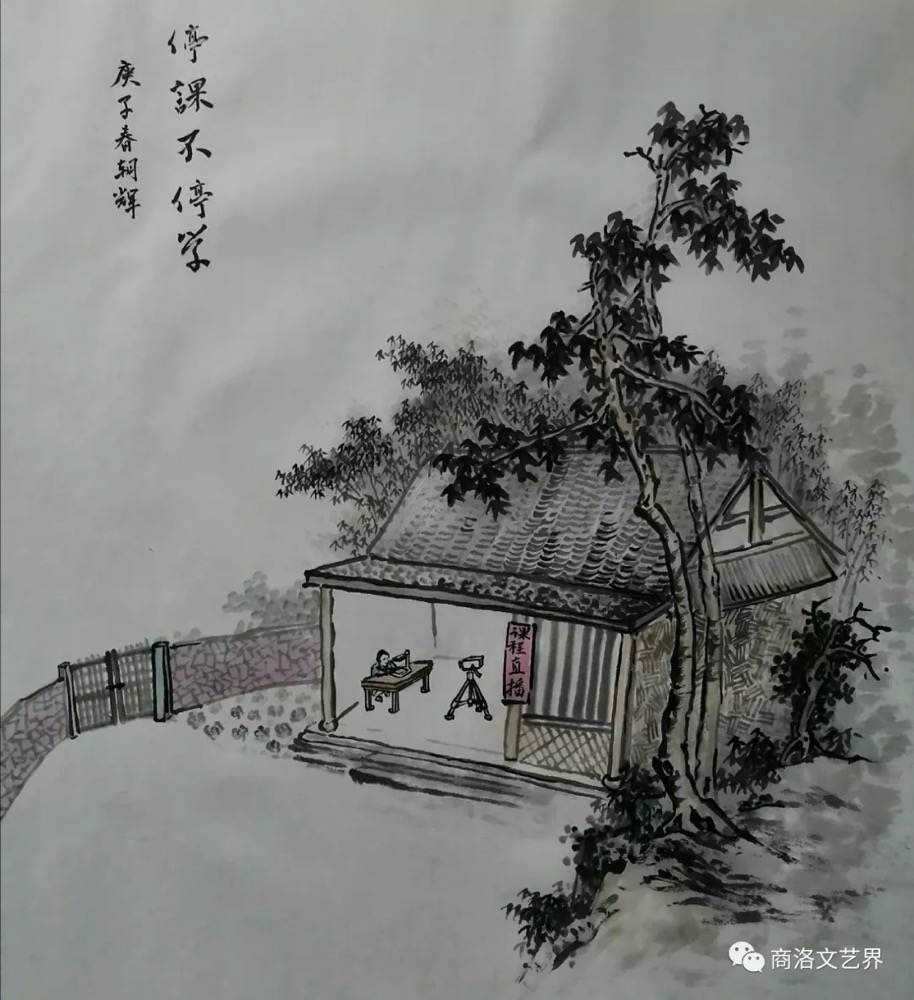 停課不停学
庚子春朝辉
课程直播
商洛文艺界